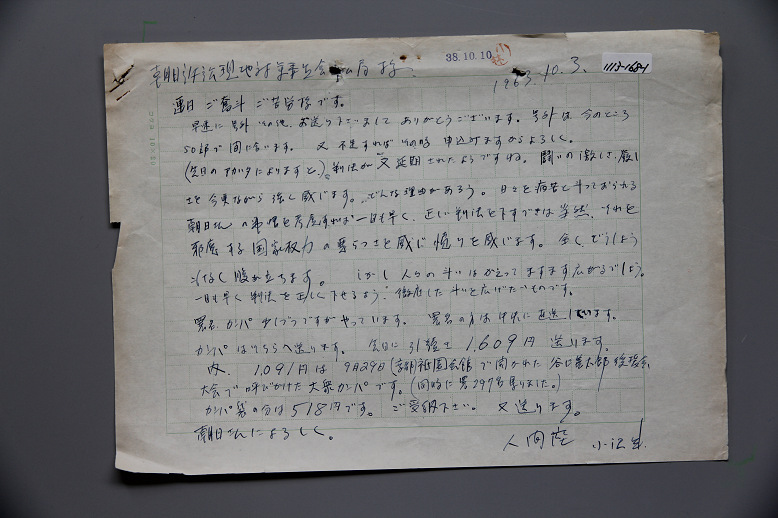 朝日訴訟現地対策委員会 局様
38.10.10
1963.10.3.
1113-168-1
連日ご奮斗ご苦労様です。
早速に号外その他、お送り下さいましてありがとうございます。号外は今のところ
50部で間に合います。又不足すればその時申込みますからよろしく。
(先日のアカハタによりますと、)判決が又延期されたようですね。闘いの激しさ、厳し
さを今更ながら強く感じます。どんな理由があろう。日々を病苦と斗っておられる
朝日さんの 考慮すれば一日も早く、正しい判決を下すべきは当然、それを
邪魔する国家权力の 感じ憤りを感じます。全くどうしよう
もなく腹が立ちます。しかし人らの斗いはかえってますます広がるでしょう。
一日も早く判決を正しく下せるよう、徹底した斗いを広げたいものです。
署名、カンパ少しづつですがやっています。署名の方は中央に直送しています。
カンパはそちらへ送ります。今日に引続き1,609円送ります。
内、1,091円は9月29日(京都)祇園会館で開かれた谷口善太郎後援会
大会で呼びかけた大衆カンパです。(同時に署名297名集りました。)
カンパ袋の分は518円です。ご受納下さい。又送ります。
朝日さんによろしく。
人間座 小沢